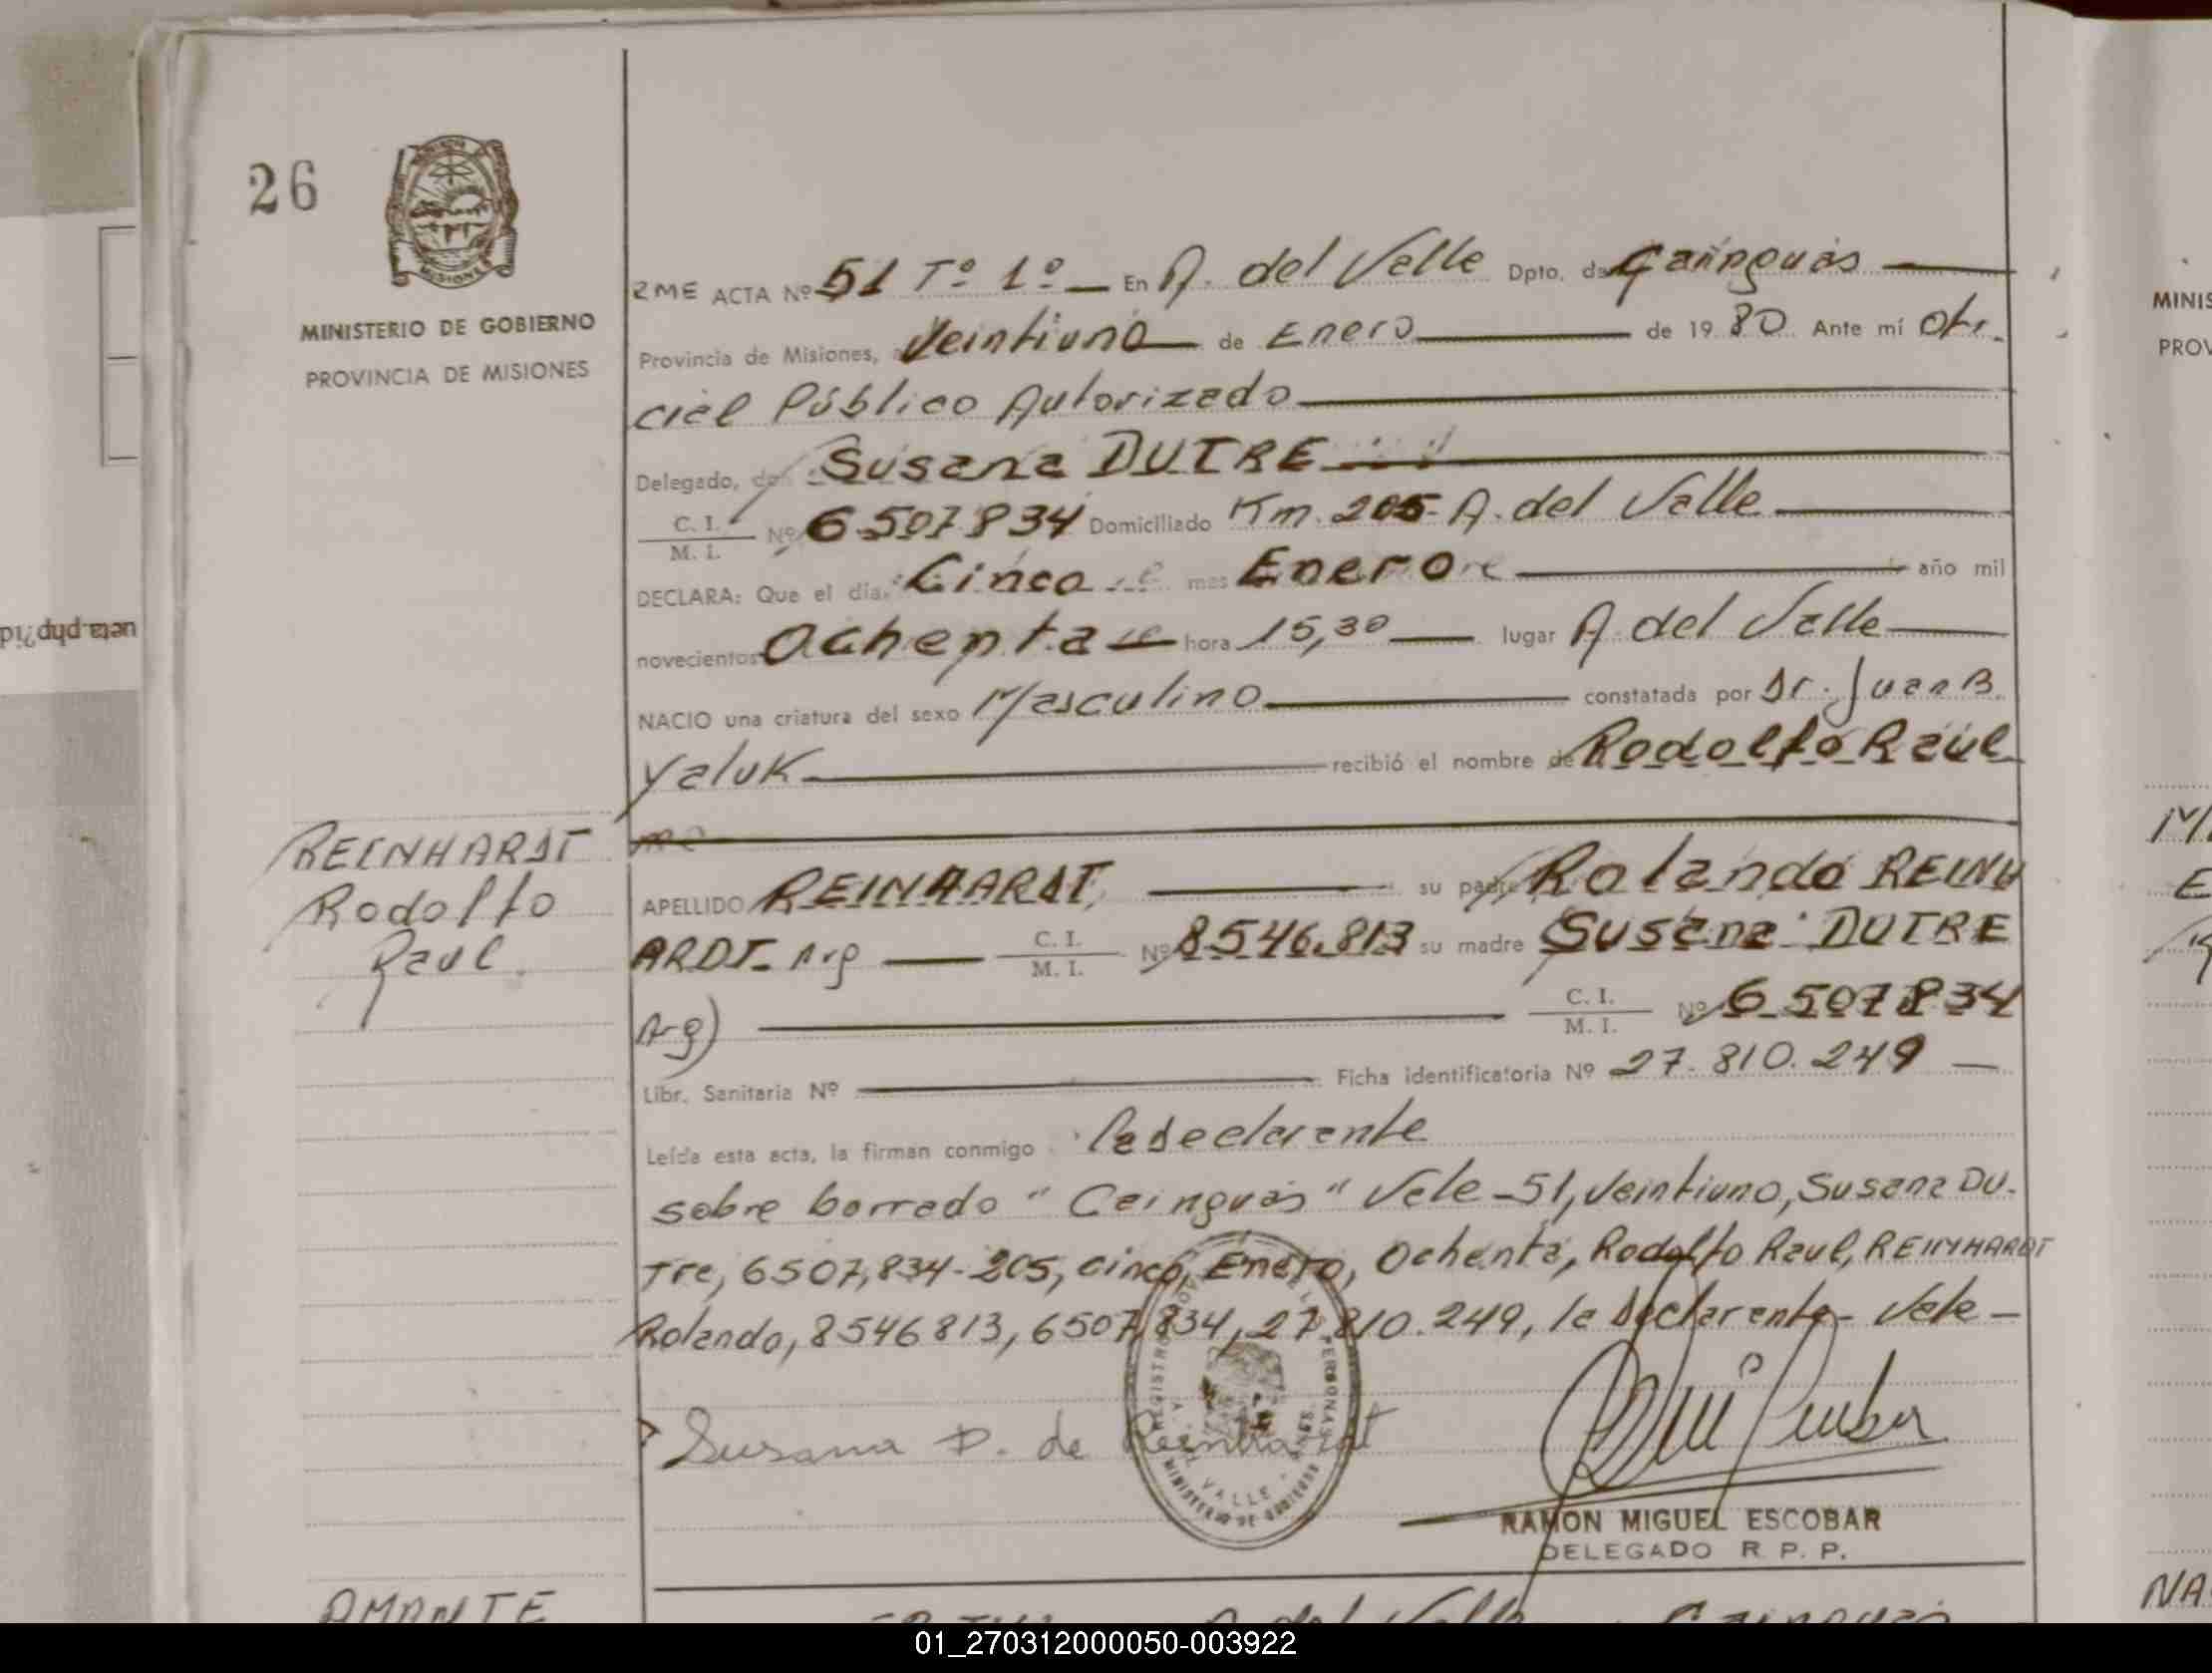 26
MINISTERIO DE GOBIERNO
PROVINCIA DE MISIONES
REINHARDT
Rodolfo
Raul
2ME ACTA Nº 51 Tº 1º En A. del Valle Dpto. de Cainguás
Provincia de Misiones, Veintiuno de Enero de 1980 Ante mí Ofi.
cial Público Autorizado
Delegado, Susana DUTRE
C. I. / M. I. Nº 6507834 Domiciliado Km. 205- A. del Valle
DECLARA: Que el dia Cinco mes Enero año mil
novecientos Ochenta hora 15,30 lugar A. del Valle
NACIO una criatura del sexo Masculino constatada por Dr. Juan B.
Yaluk recibió el nombre de Rodolfo Raúl
APELLIDO REINHARDT, su padre Rolando REINH
ARDT- Arg C. I. / M. I. Nº 8546.813 su madre Susana DUTRE
Arg) C. I. / M. I. Nº 6507834
Libr. Sanitaria Nº Ficha identificatoria Nº 27.810.249
Leída esta acta, la firman conmigo la declarante
sobre borrado "Cainguás" Vale-51, Veintiuno, Susana Du-
tre, 6507,834-205, cinco, Enero, Ochenta, Rodolfo Raul, REINHARDT
Rolando, 8546813, 6507,834, 27,810.249, la declarante- Vale-
Susana D. de Reinhardt
RAMON MIGUEL ESCOBAR
DELEGADO R. P. P.
AMANTE
A. del Valle Cainguás
ueta.php?id
MINIS
PROV
01_270312000050-003922